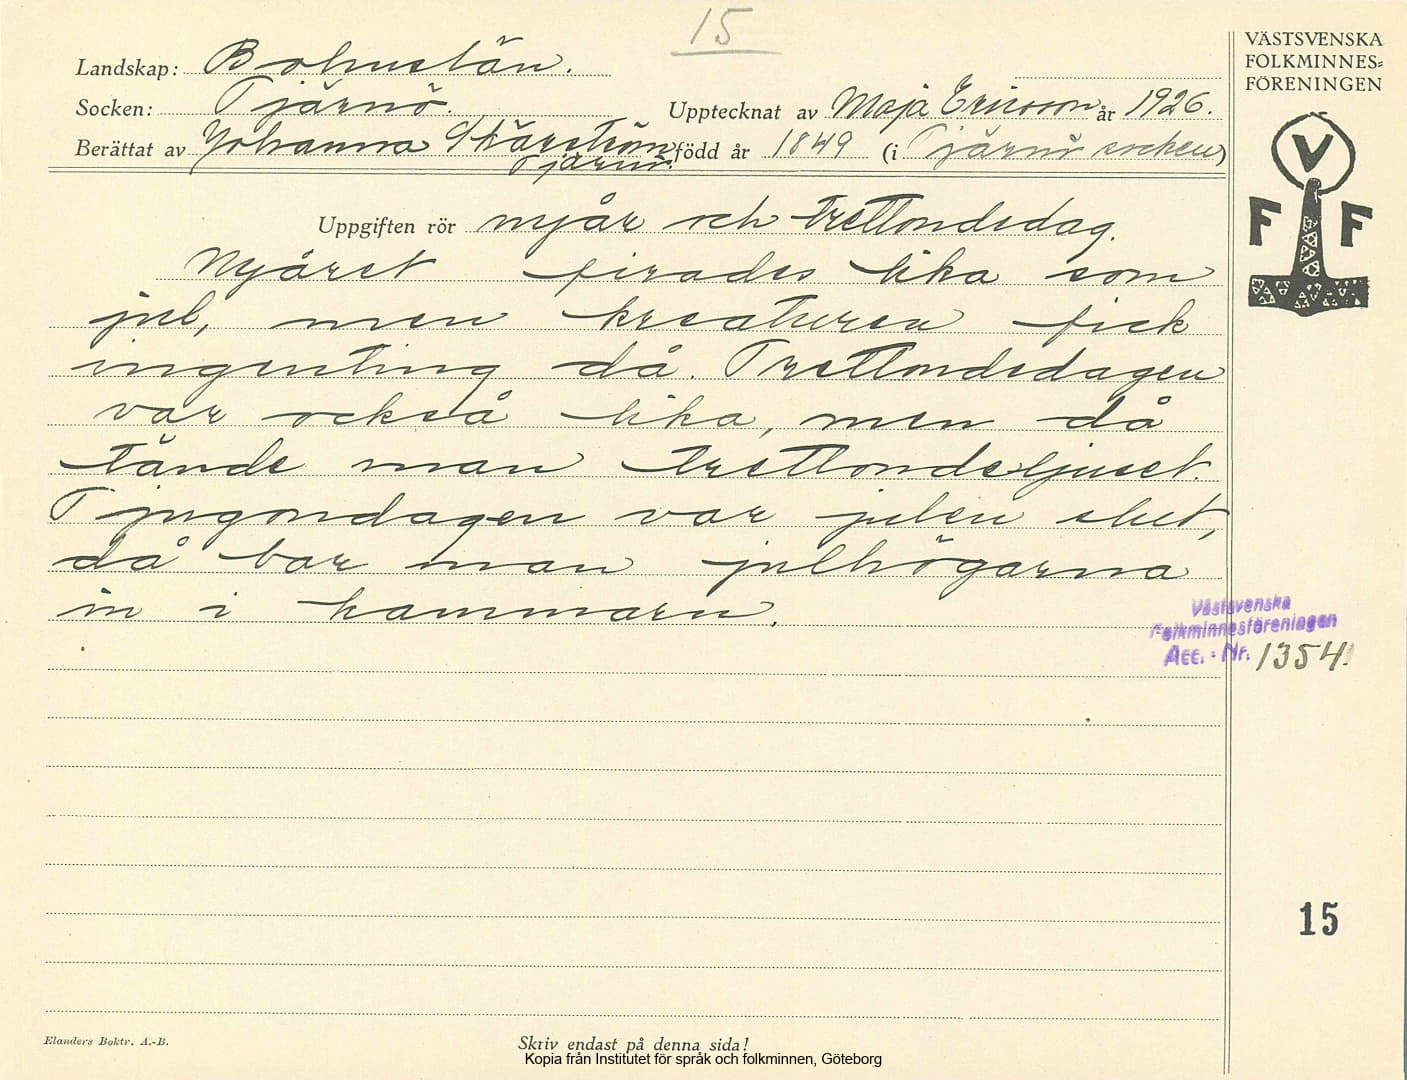 15
VÄSTSVENSKA
FOLKMINNES=
FÖRENINGEN
Landskap: Bohuslän.
Socken: Tjärnö. Upptecknat av Maja Ericson år 1926.
Berättat av Johanna Skärström född år 1849 (i Tjärnö socken)
Tjärnö.
V
F F
Uppgiften rör nyår och trettondedag.
Nyåret firades lika som
jul, men kreaturen fick
ingenting då. Trettondedagen
var också lika, men då
tände man trettondeljuset.
Tjugondagen var julen slut,
då bar man julhögarna
in i kammarn.
Västsvenska
Folkminnesföreningen
Acc. - Nr. 1354.
15
Elanders Boktr. A.-B.
Skriv endast på denna sida!
Kopia från Institutet för språk och folkminnen, Göteborg